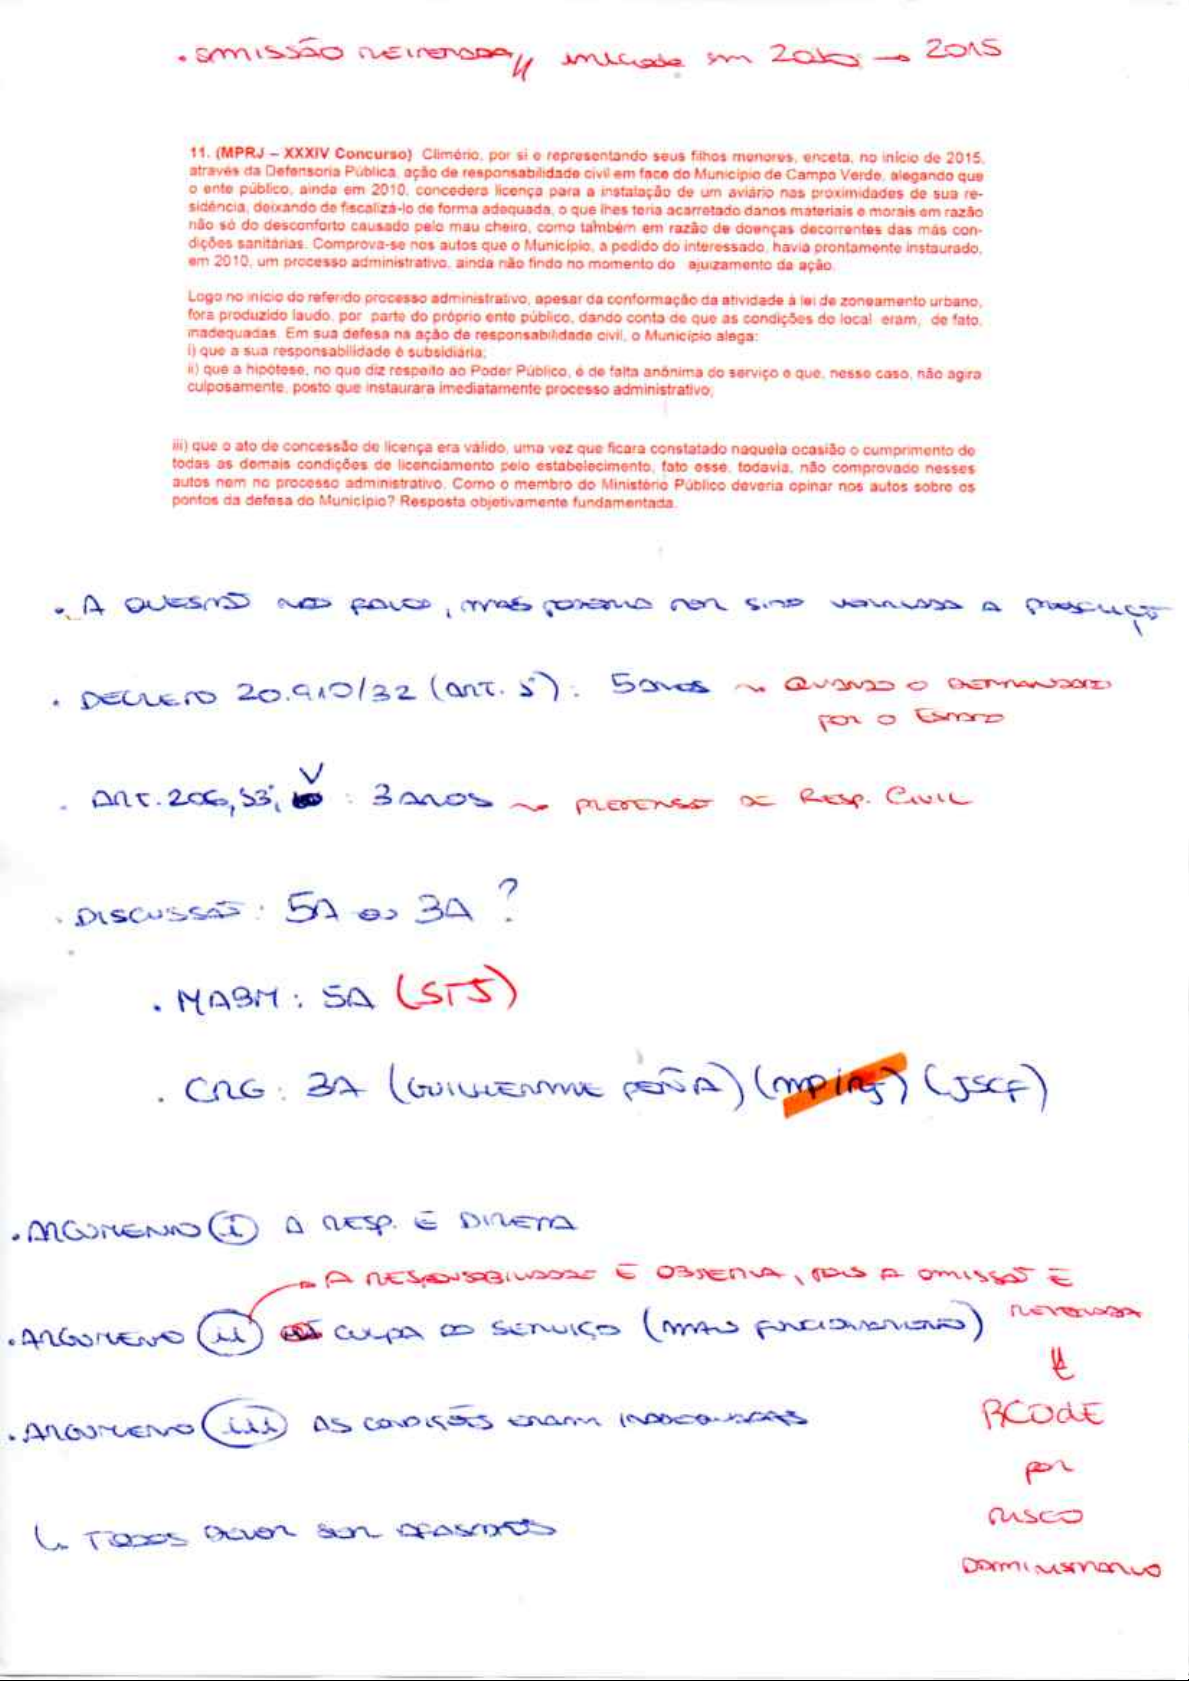 . OMISSÃO REITERADA// iniciada em 2010 → 2015
11. (MPRJ – XXXIV Concurso) Climério, por si e representando seus filhos menores, enceta, no início de 2015,
através da Defensoria Pública, ação de responsabilidade civil em face do Município de Campo Verde, alegando que
o ente público, ainda em 2010, concedera licença para a instalação de um aviário nas proximidades de sua re-
sidência, deixando de fiscalizá-lo de forma adequada, o que lhes teria acarretado danos materiais e morais em razão
não só do desconforto causado pelo mau cheiro, como também em razão de doenças decorrentes das más con-
dições sanitárias. Comprova-se nos autos que o Município, a pedido do interessado, havia prontamente instaurado,
em 2010, um processo administrativo, ainda não findo no momento do ajuizamento da ação.
Logo no início do referido processo administrativo, apesar da conformação da atividade à lei de zoneamento urbano,
fora produzido laudo, por parte do próprio ente público, dando conta de que as condições do local eram, de fato,
inadequadas. Em sua defesa na ação de responsabilidade civil, o Município alega:
i) que a sua responsabilidade é subsidiária;
ii) que a hipótese, no que diz respeito ao Poder Público, é de falta anônima do serviço e que, nesse caso, não agira
culposamente, posto que instaurara imediatamente processo administrativo;
iii) que o ato de concessão de licença era válido, uma vez que ficara constatado naquela ocasião o cumprimento de
todas as demais condições de licenciamento pelo estabelecimento, fato esse, todavia, não comprovado nesses
autos nem no processo administrativo. Como o membro do Ministério Público deveria opinar nos autos sobre os
pontos da defesa do Município? Resposta objetivamente fundamentada.
. A QUESTÃO NÃO FALOU, MAS PODERIA TER SIDO VENTILADA A PRESCRIÇÃO
. DECRETO 20.910/32 (ART. 5º): 5 ANOS ~ QUANDO O DEMANDADO
FOR O ESTADO
. ART. 206, §3º, V : 3 ANOS ~ PRETENSÃO DE RESP. CIVIL
. DISCUSSÃO: 5A OU 3A ?
. MABM: 5A (STJ)
. CRG: 3A (GUILHERME PEÑA) (MP/RJ) (JSCF)
. ARGUMENTO (i) A RESP. É DIRETA
→ A RESPONSABILIDADE É OBJETIVA, POIS A OMISSÃO É
REITERADA
. ARGUMENTO (ii) CULPA DO SERVIÇO (MAU FUNCIONAMENTO)
RCODE
. ARGUMENTO (iii) AS CONDIÇÕES ERAM INADEQUADAS
por
RISCO
↳ TODOS DEVEM SER AFASTADOS
ADMINISTRATIVO